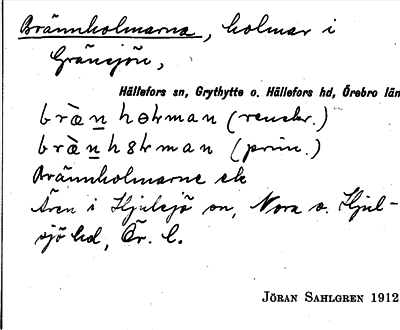 Brännholmarna, holmar i
Gränsjön,
Hällefors sn, Grythytte o. Hällefors hd, Örebro län
bræ̀n̲ hɵɫman (renskr.)
bræ̀n̲h8ɫman (prim.)
Brännholmarne ek
Åren i Hjulsjö sn, Nora o. Hjul-
sjö hd, Ör. l.
JÖRAN SAHLGREN 1912